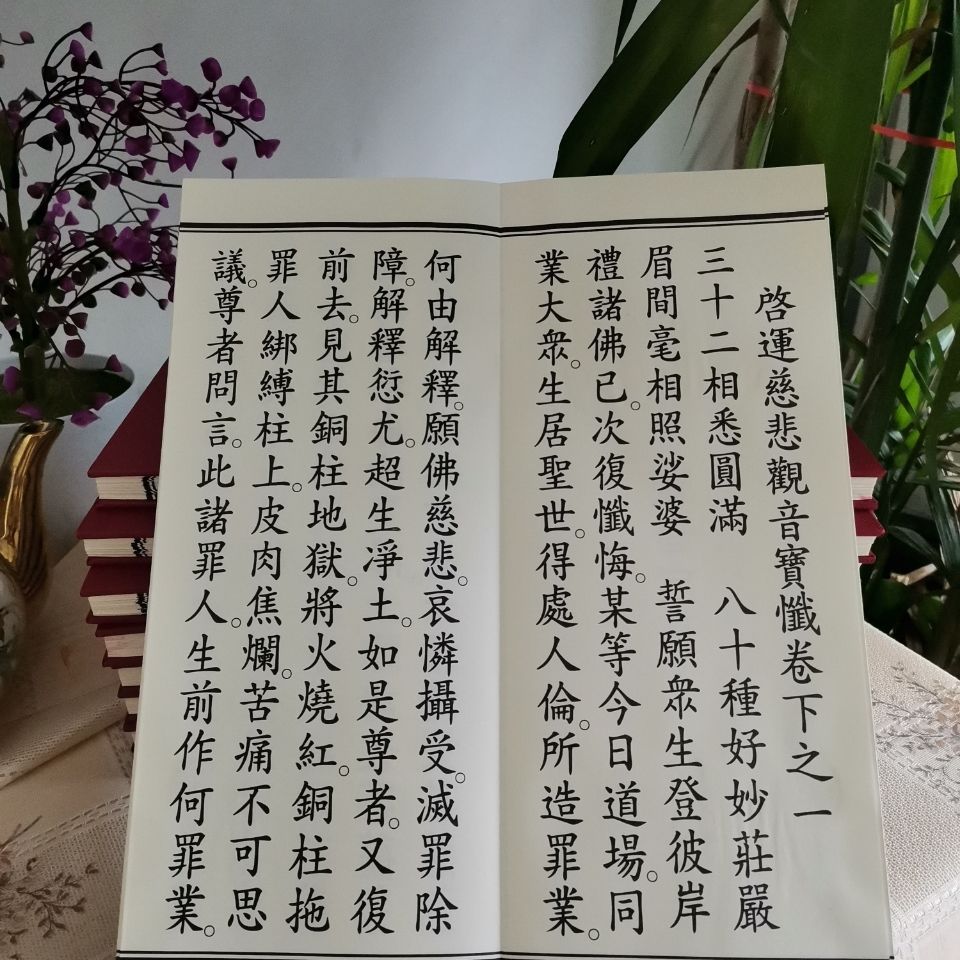 啓運慈悲觀音寶懺卷下之一
三十二相悉圓滿　八十種好妙莊嚴
眉間毫相照娑婆　誓願衆生登彼岸
禮諸佛已。次復懺悔。某等今日道場。同
業大衆。生居聖世。得處人倫。所造罪業。
何由解釋。願佛慈悲。哀憐攝受。滅罪除
障。解釋愆尤。超生淨土。如是尊者。又復
前去。見其銅柱地獄。將火燒紅。銅柱拖
罪人綁縛柱上。皮肉焦爛。苦痛不可思
議。尊者問言。此諸罪人。生前作何罪業。